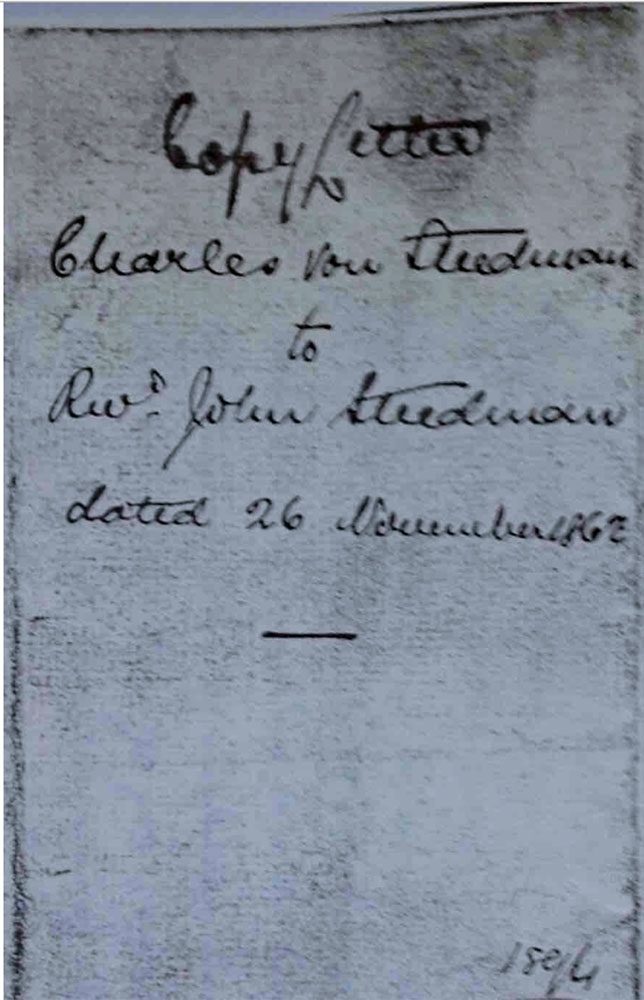 Copy Letter
Charles von Steedman
to
Revd. John Steedman
dated 26 November 1862